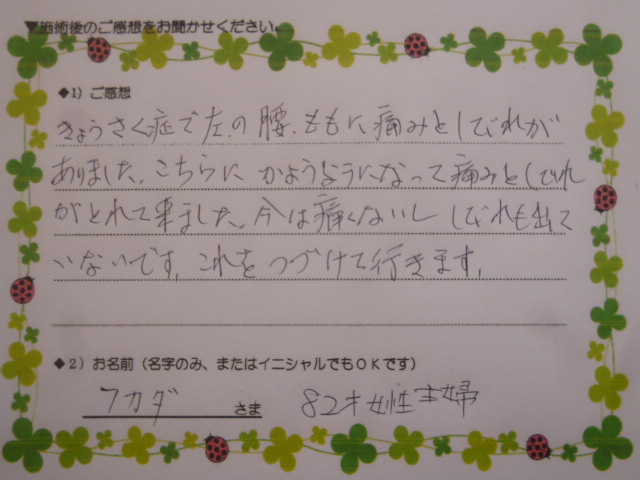 ▼施術後のご感想をお聞かせください。
◆1）ご感想
きょうさく症で左の腰、ももに痛みとしびれが
ありました。こちらに かようようになって痛みとしびれ
がとれて来ました。今は痛くないし しびれも出て
いないです。これを つづけて行きます。
◆2）お名前（名字のみ、またはイニシャルでもＯＫです）
フカダ さま 82才女性主婦